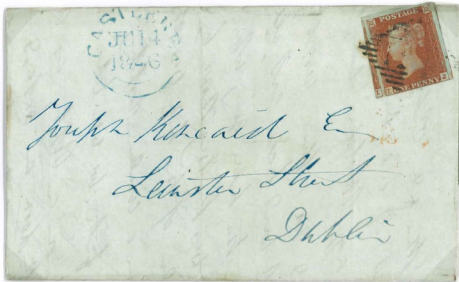 CASTLEREA
JU 14
1846
POSTAGE
ONE PENNY
Joseph Kincaid Es
Leinster Street
Dublin